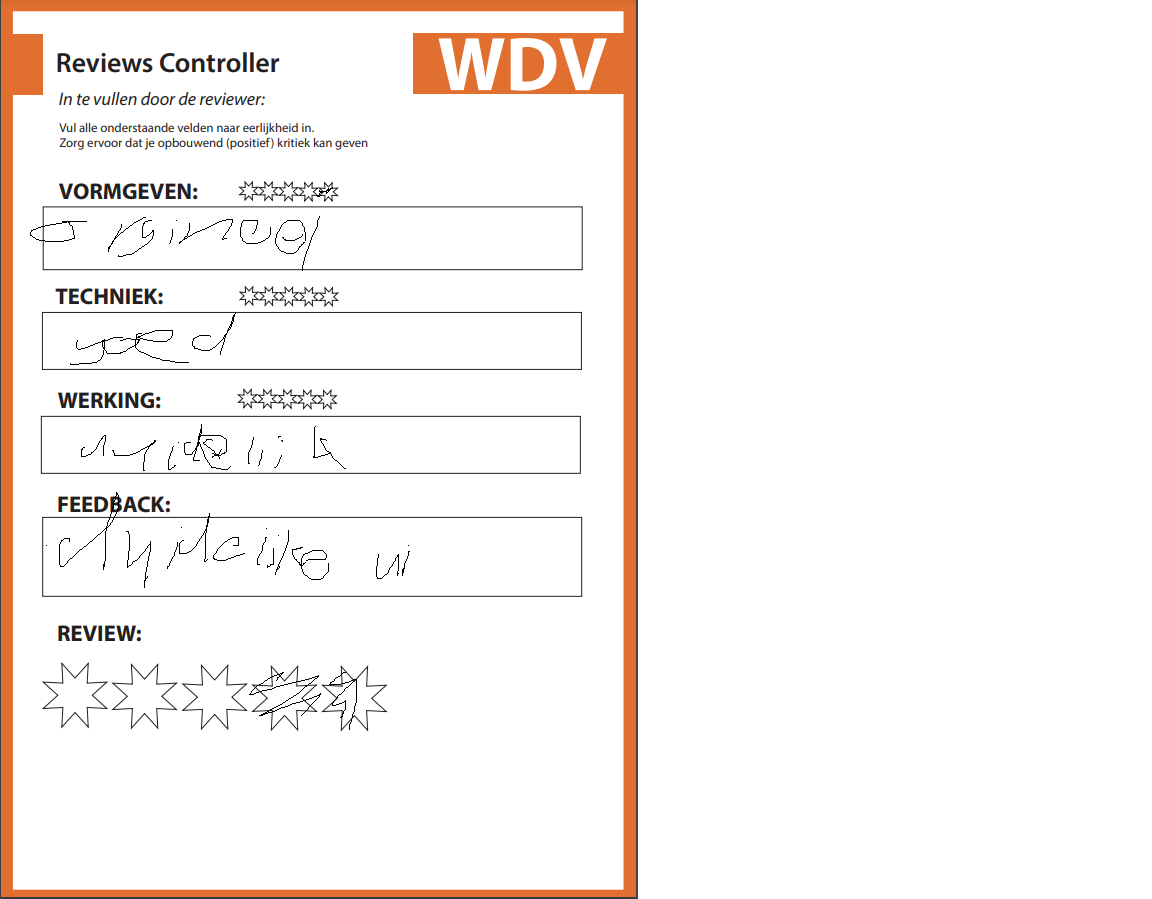 WDV
Reviews Controller
In te vullen door de reviewer:
Vul alle onderstaande velden naar eerlijkheid in.
Zorg ervoor dat je opbouwend (positief) kritiek kan geven
VORMGEVEN:
origineel
TECHNIEK:
goed
WERKING:
duidelijk
FEEDBACK:
duidelijke ui
REVIEW: